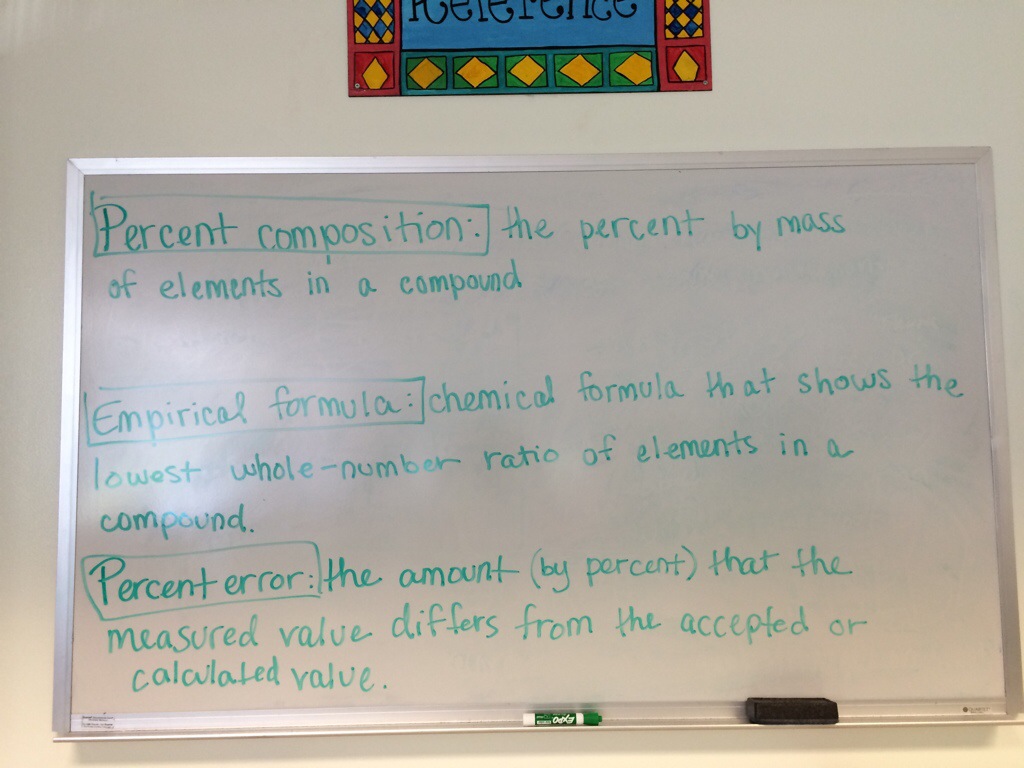 Reference
Percent composition: the percent by mass
of elements in a compound
Empirical formula: chemical formula that shows the
lowest whole-number ratio of elements in a
compound.
Percent error: the amount (by percent) that the
measured value differs from the accepted or
calculated value.
EXPO